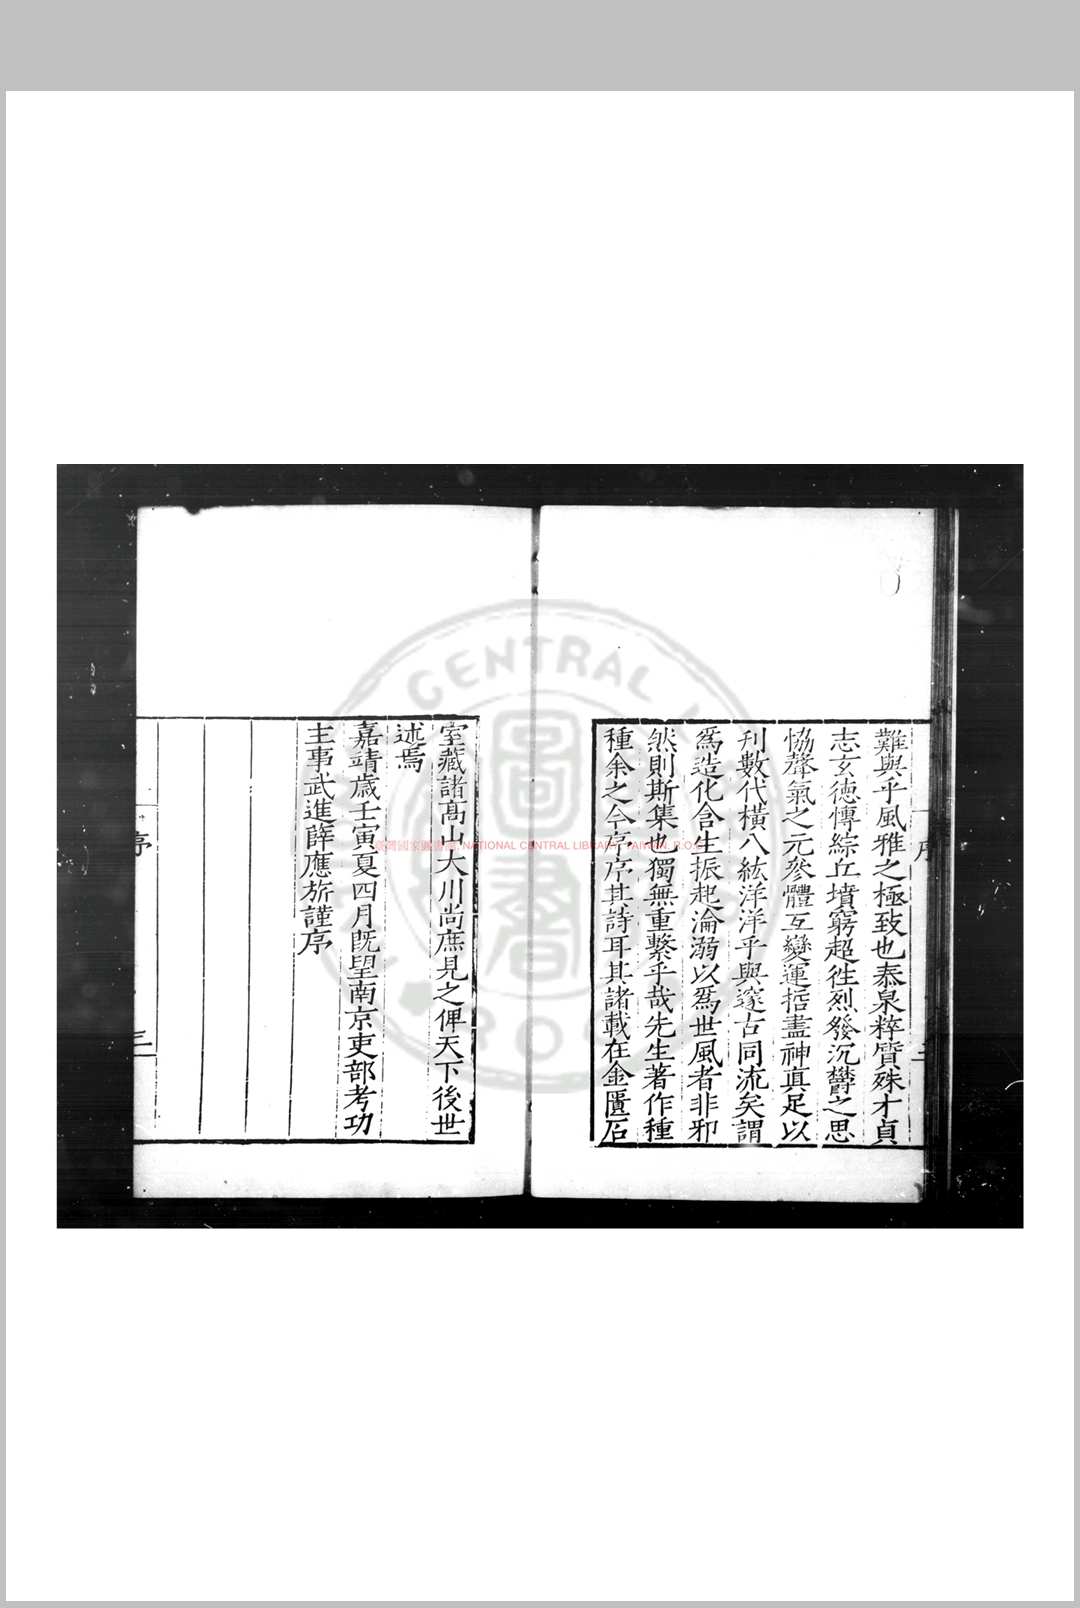 難與乎風雅之極致也泰泉粹質殊才貞
志玄德博綜丘墳窮超徃烈發沉欝之思
恊聲氣之元叅體互變運括盡神真足以
刋數代橫八紘洋洋乎與邃古同流矣謂
爲造化含生振起淪溺以爲世風者非邪
然則斯集也獨無重繫乎哉先生著作種
種余之今序序其詩耳其諸載在金匱石
室藏諸高山大川尚庶見之俾天下後世
述焉
嘉靖歲壬寅夏四月旣望南京吏部考功
主事武進薛應旂謹序
序
三
臺灣國家圖書館, NATIONAL CENTRAL LIBRARY, TAIWAN, R.O.C